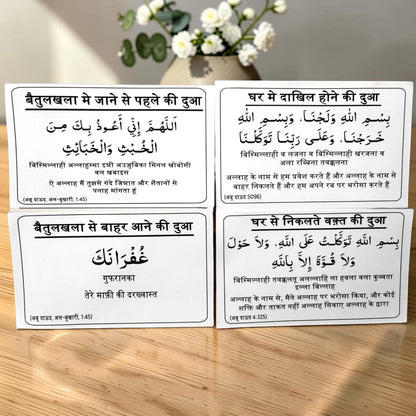 बैतुलखला मे जाने से पहले की दुआ
اَللَّهُمَّ إِنِّي أَعُوذُ بِكَ مِنَ
الْخُبْثِ وَالْخَبَائِثِ
बिस्मिल्लाही अल्लाहुम्मा इन्नी अऊजुबिका मिनल खोबोसी
वल खबाइस
ऐ अल्लाह मैं तुझसे गंदे जिन्नात और शैतानों से
पनाह मांगता हूं
(अबू दाऊद, अल-बुखारी, 1:45)
घर मे दाखिल होने की दुआ
بِسْمِ اللهِ وَلَجْنَا، وَبِسْمِ اللهِ
خَرَجْنَا، وَعَلَى رَبِّنَا تَوَكَّلْنَا
बिस्मिल्लाही व लजना व बिस्मिल्लाही खरजना व
अला रब्बिना तवक्कलना
अल्लाह के नाम से हम प्रवेश करते हैं और अल्लाह के नाम से
बाहर निकलते हैं और हम अपने रब पर भरोसा करते हैं
(अबू दाऊद 5096)
बैतुलखला से बाहर आने की दुआ
غُفْرَانَكَ
गुफरानका
तेरे माफ़ी की दरख्वास्त
(अबू दाऊद, अल-बुखारी, 1:45)
घर से निकलते वक़्त की दुआ
بِسْمِ اللهِ تَوَكَّلْتُ عَلَى اللهِ، وَلاَ حَوْلَ
وَلاَ قُوَّةَ إِلاَّ بِاللَّهِ
बिस्मिल्लाही तवक्कलतू अलल्लाहि ला हवला वला कुव्वता
इल्ला बिल्लाह
अल्लाह के नाम से, मैंने अल्लाह पर भरोसा किया, और कोई
शक्ति और ताकत नहीं अल्लाह सिवाए अल्लाह के द्वारा
(अबू दाऊद 4:325)